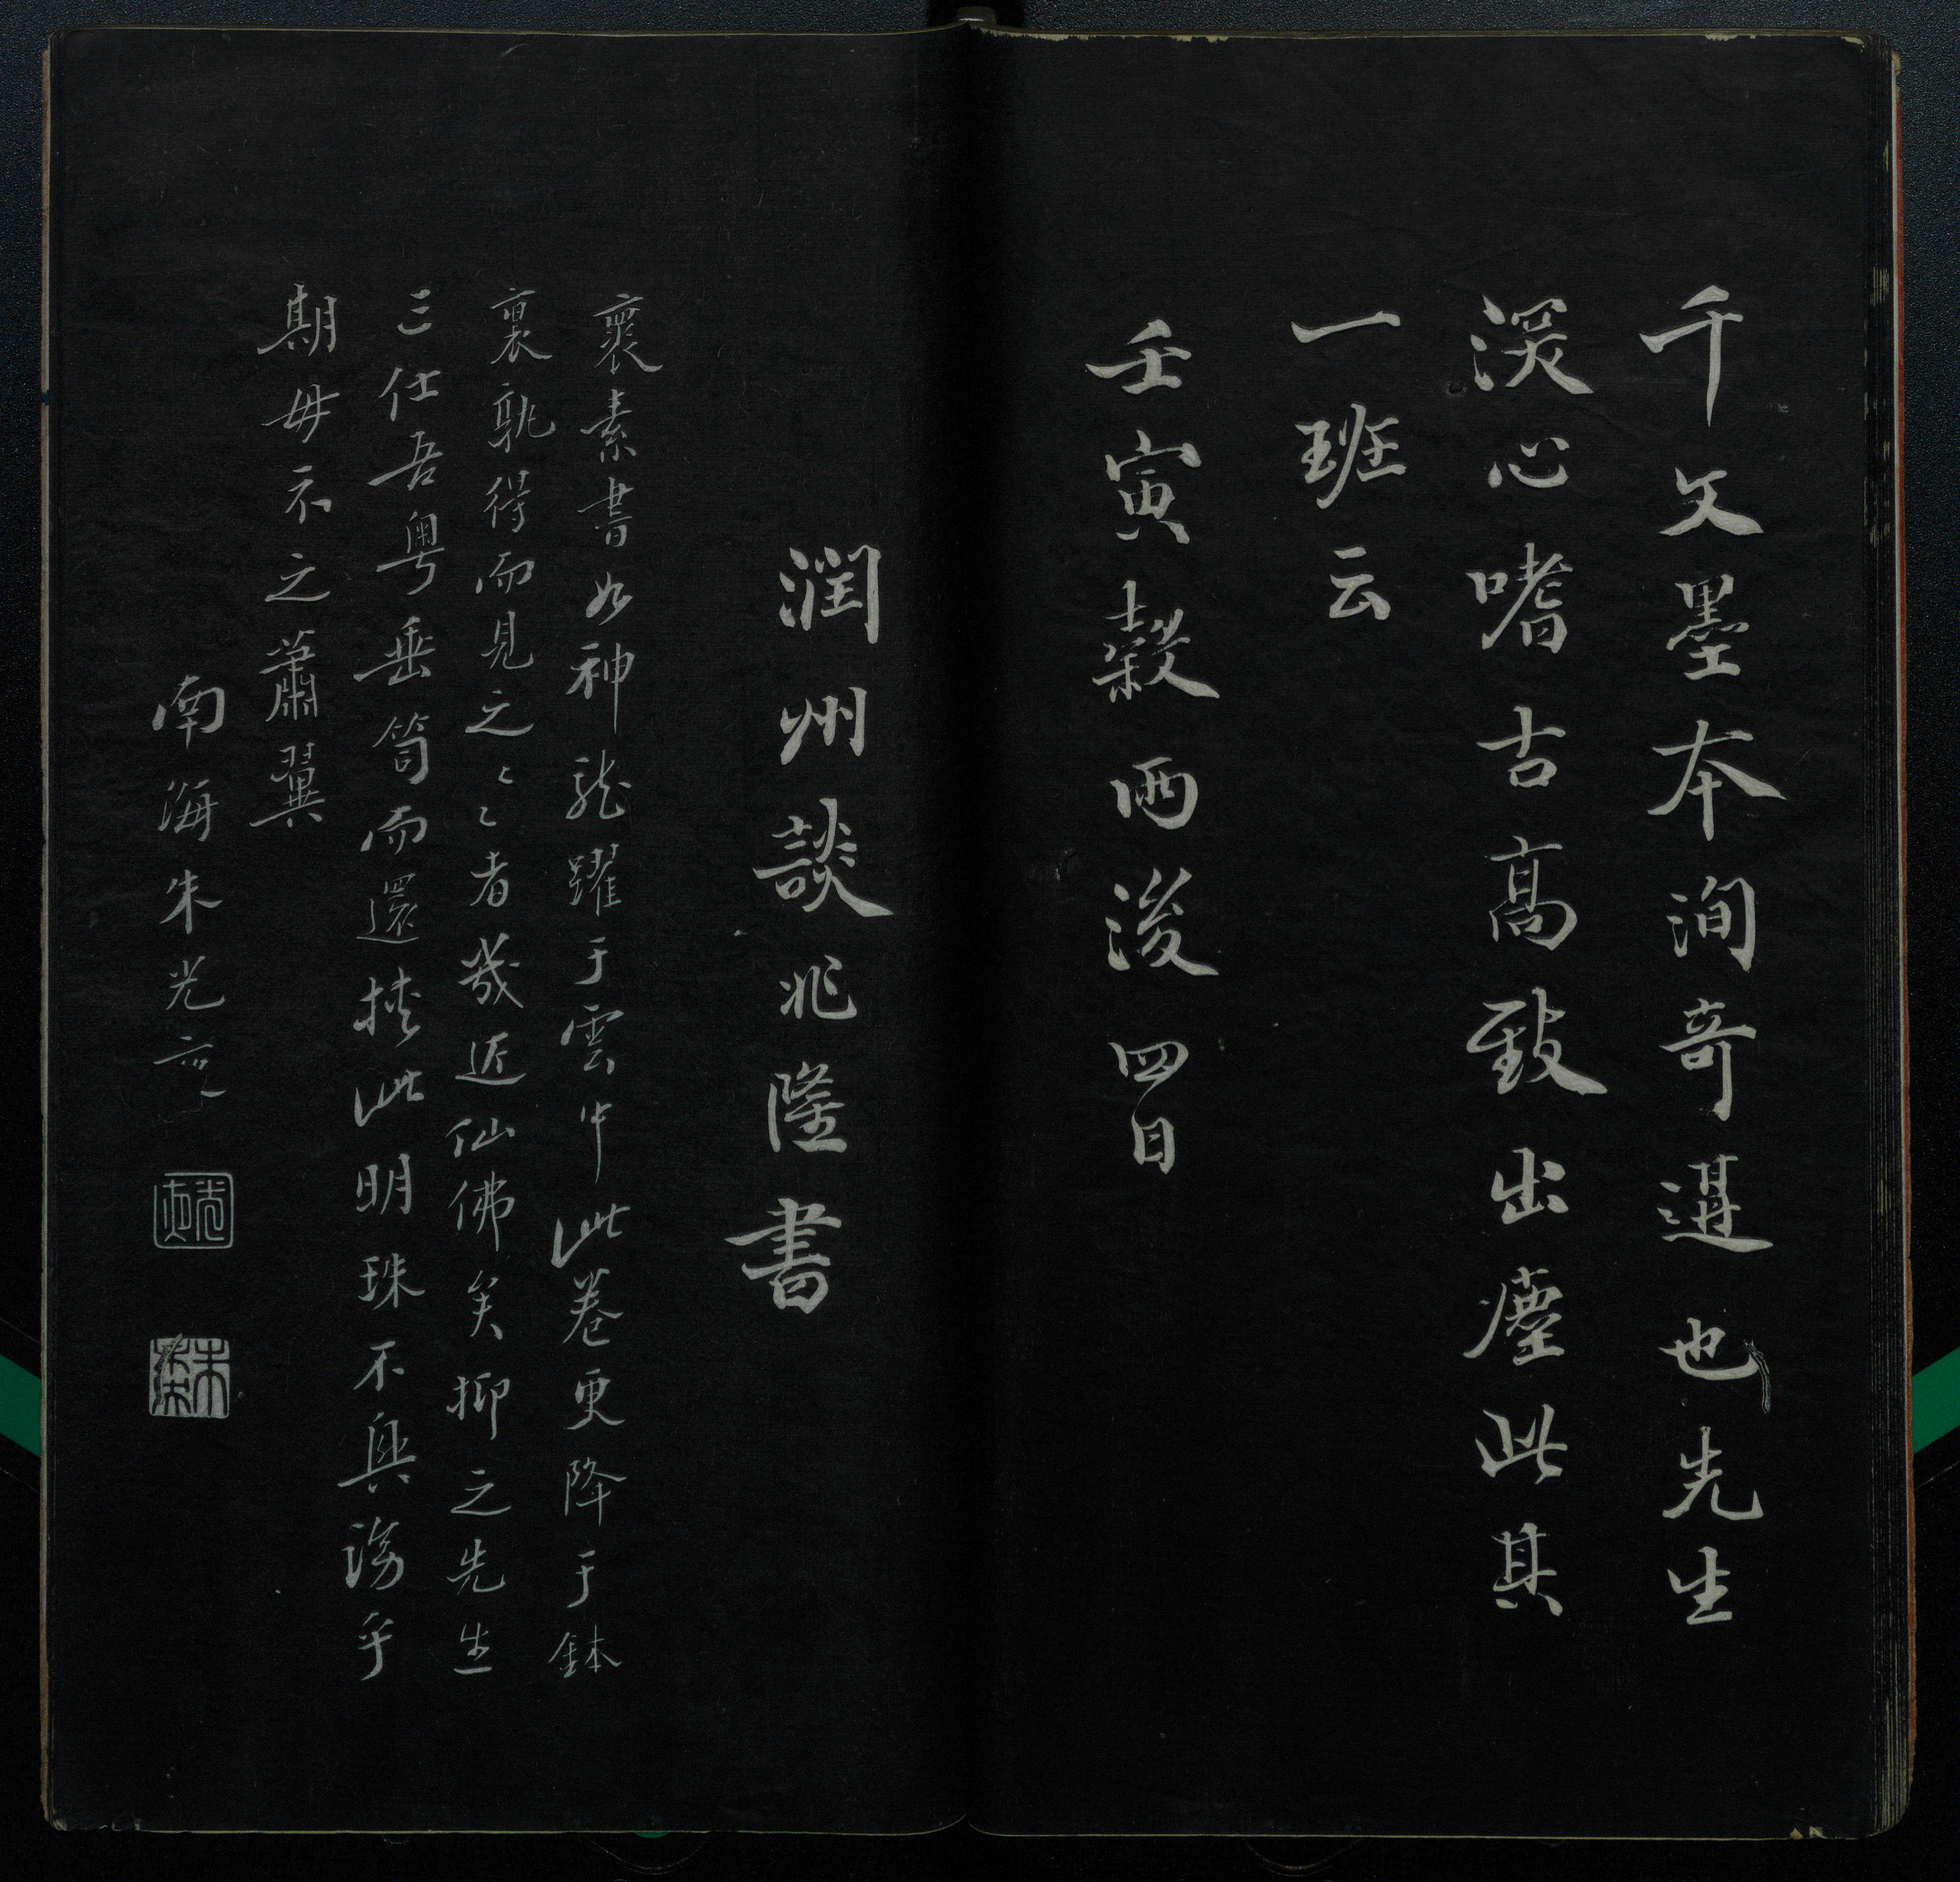 千文墨本洵奇遘也先生
深心嗜古高致出塵此其
一班云
壬寅穀雨後四日
潤州談兆隆書
褱素書如神龍躍于雲中此卷更降于鉢
裏孰得而見之〻〻者幾近仙佛矣抑之先生
三仕吾粤垂笥而還挾此明珠不與謗乎
期毋示之蕭翼
南海朱光